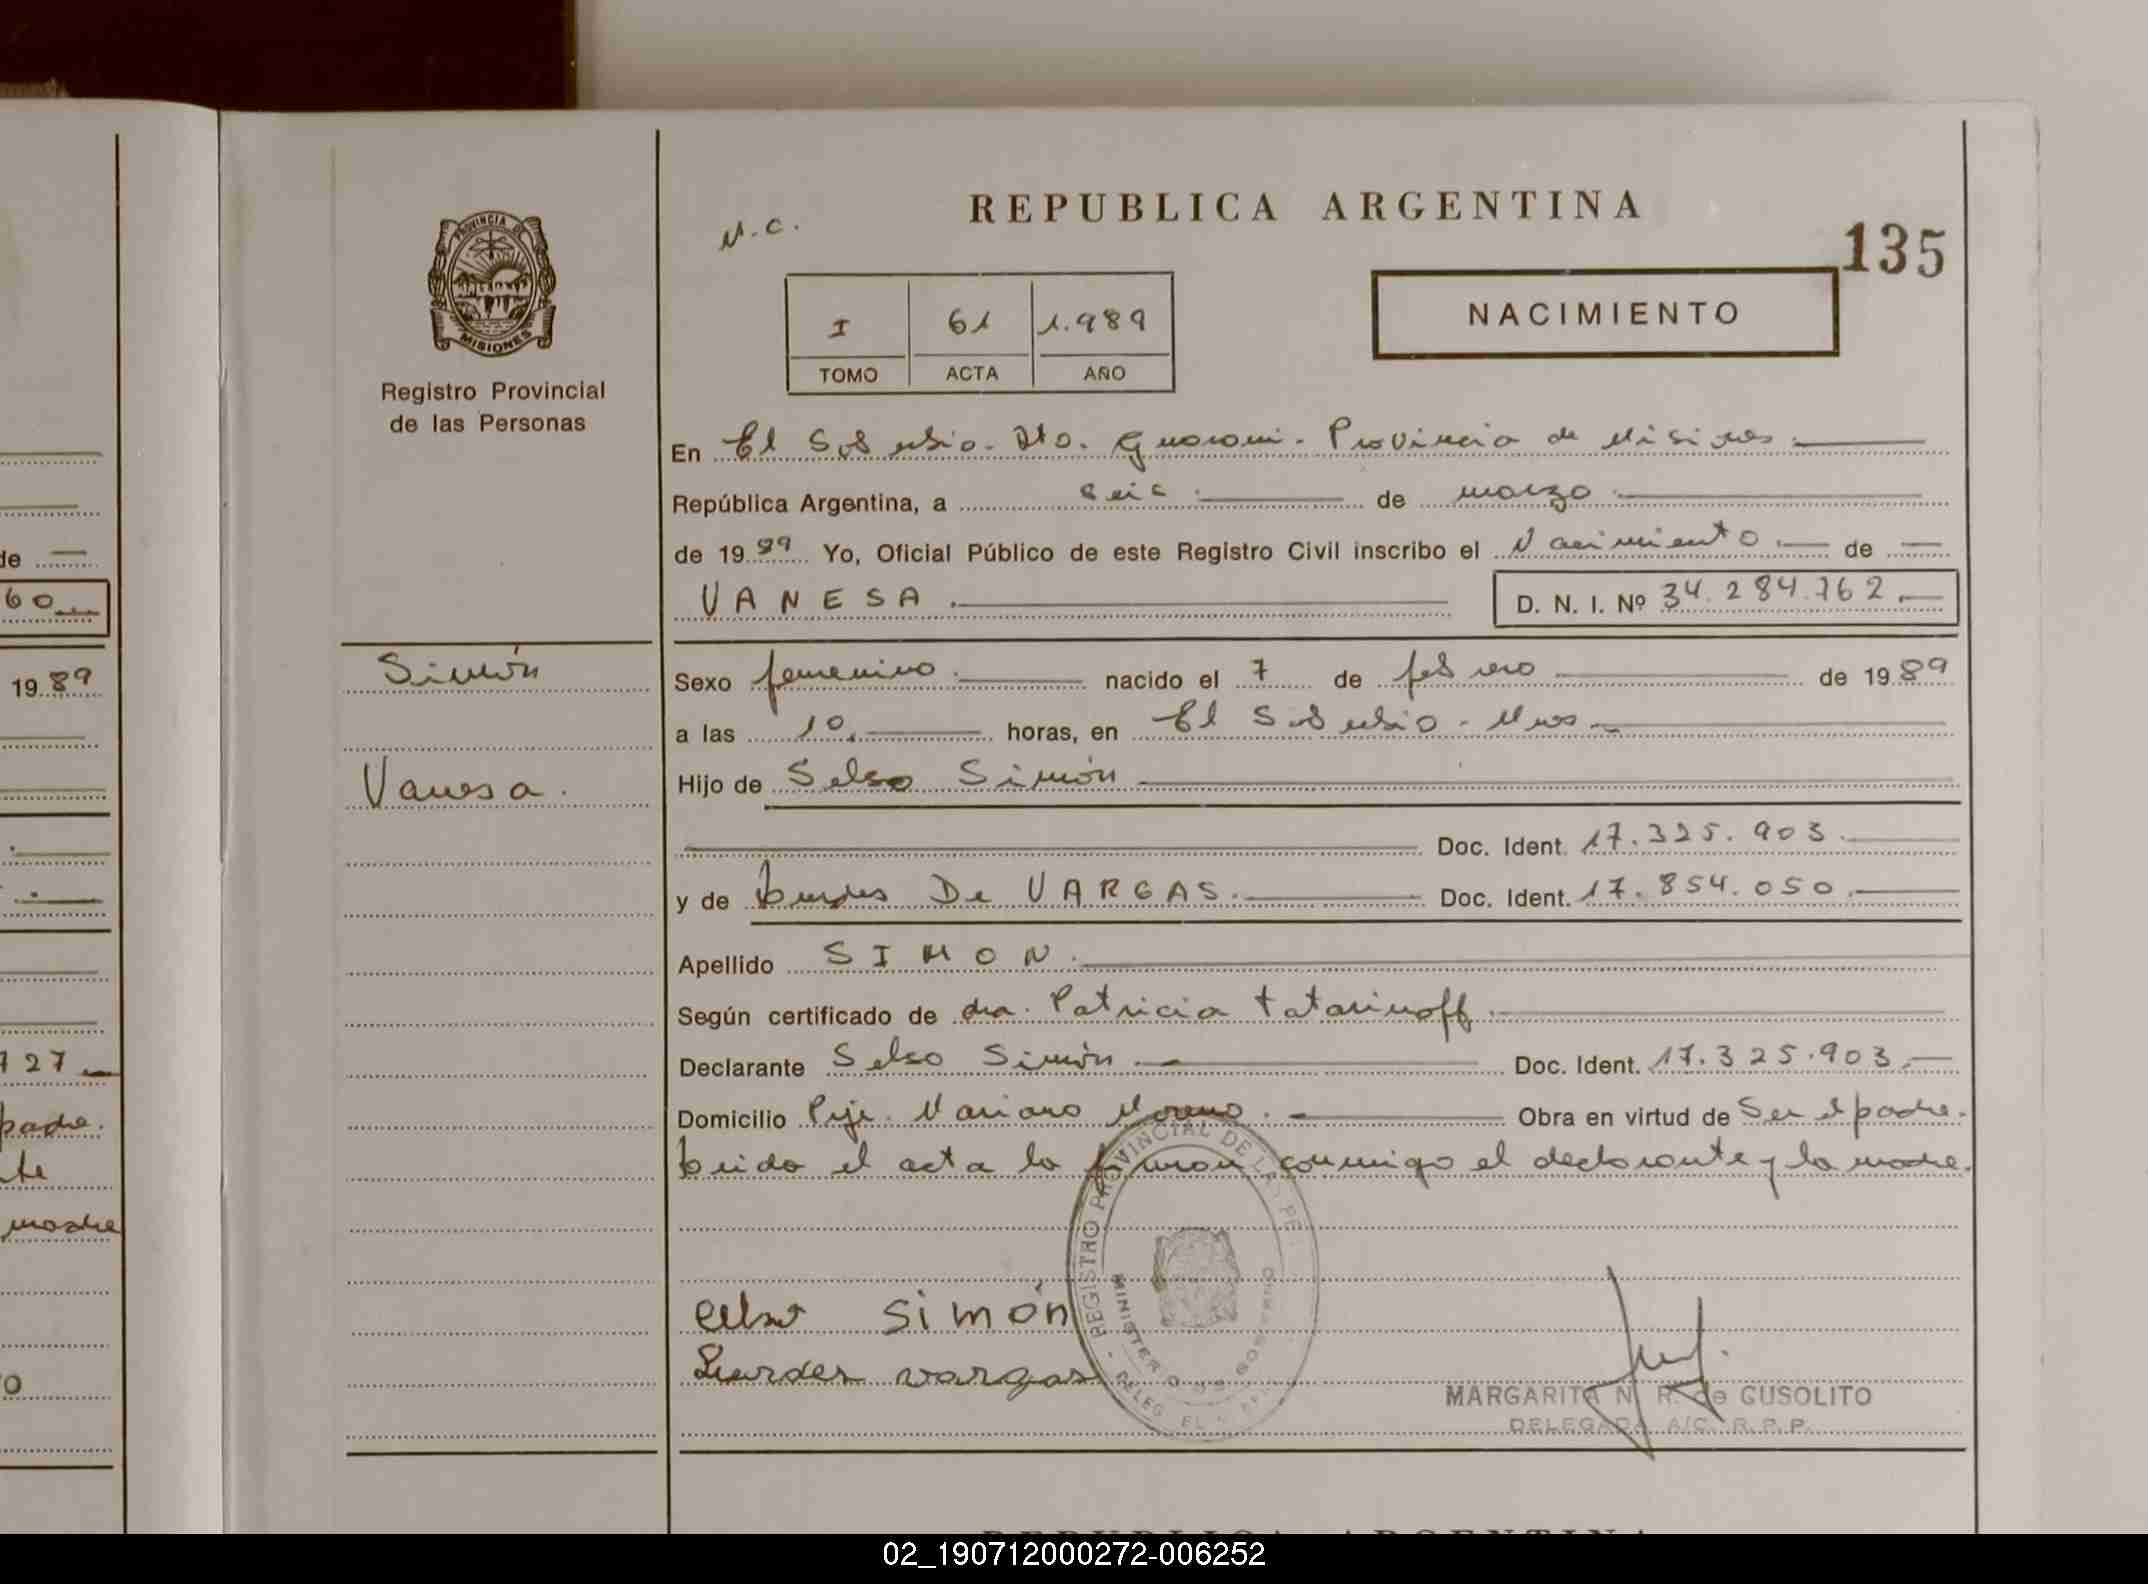 REPUBLICA ARGENTINA
N.C.
135
PROVINCIA DE
MISIONES
Registro Provincial
de las Personas
I 61 1.989
TOMO ACTA AÑO
NACIMIENTO
En El Soberbio. Dto. Guarani. Provincia de Misiones.
República Argentina, a seis. de marzo.
de 1989 Yo, Oficial Público de este Registro Civil inscribo el Nacimiento. de
VANESA. D. N. I. Nº 34.284.762.
Simón
Vanesa.
Sexo femenino. nacido el 7 de febrero de 1989
a las 10. horas, en El Soberbio - Mnes.
Hijo de Selso Simón
Doc. Ident. 17.325.903.
y de Lurdes De VARGAS. Doc. Ident. 17.854.050.
Apellido SIMON.
Según certificado de dra. Patricia Tatarinoff.
Declarante Selso Simón. Doc. Ident. 17.325.903.
Domicilio Pje. Mariano Moreno. Obra en virtud de Ser el padre.
Leida el acta la firman conmigo el declarante y la madre.
REGISTRO PROVINCIAL DE LAS PE
MINISTERIO DE GOBIERNO
DELEG. EL
Celso Simón
Lurdes vargas
MARGARITA N. R. de GUSOLITO
DELEGADA A/C. R.P.P.
de
60
1989
727
padre.
te
madre
o
REPUBLICA ARGENTINA
02_190712000272-006252